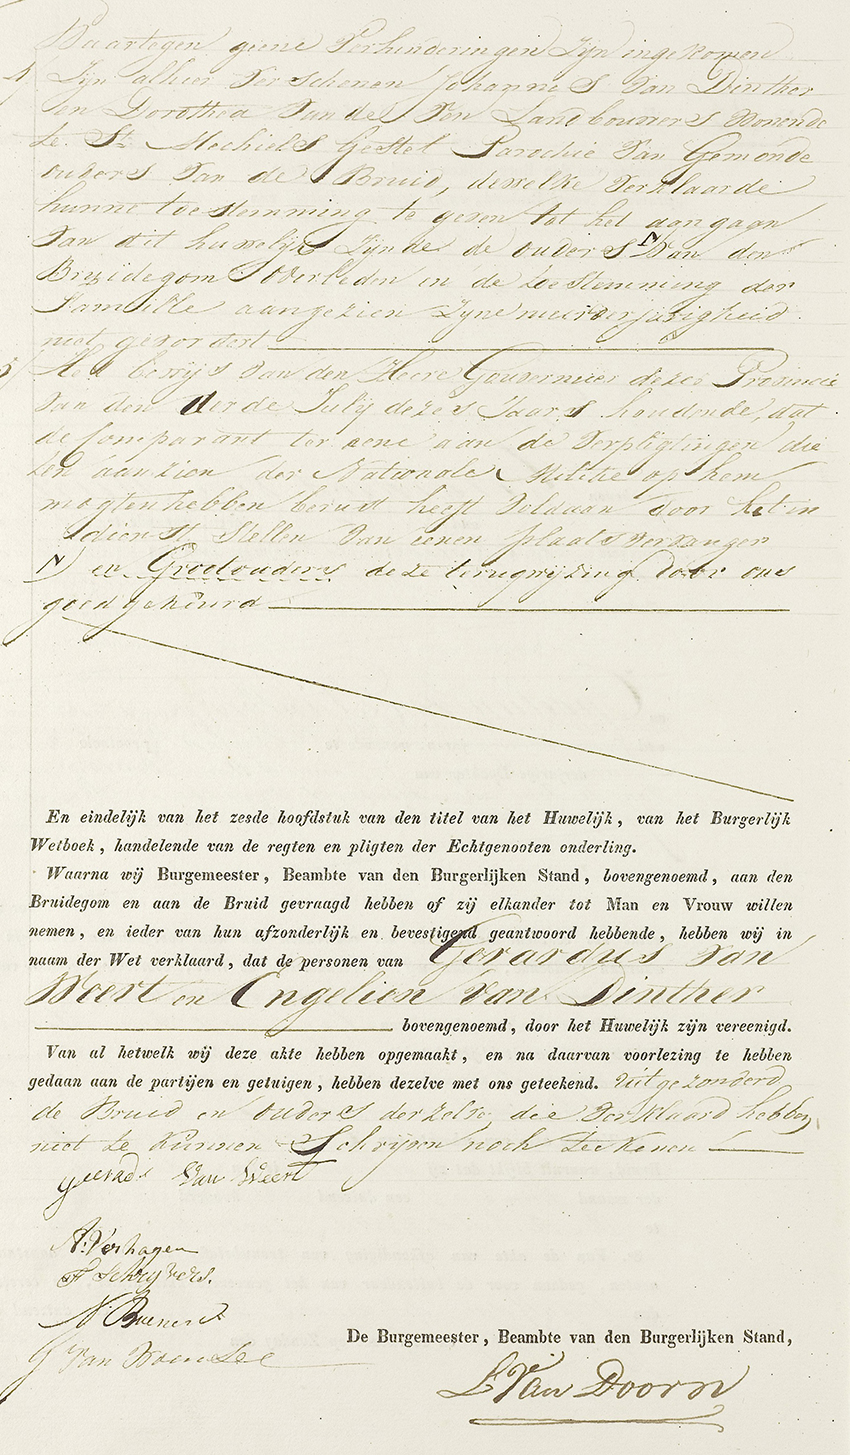 Daartegen geene Verhinderingen Zijn ingekomen
4) Zijn alhier Verschenen Johannes Van Dinther
en Dorothea Van de Ven Landbouwers Wonende
te St Mechiels Gestel Parochie Van Gemonde
ouders Van de Bruid, dewelke Verklaarde
hunne toestemming te geven tot het aangaan
Van dit huwelijk Zijnde de ouders N Van den
Bruidegom Overleden en de toestemming der
Familie aangezien Zyne meerderjarigheid
niet gevordert
5) Het bewys Van den Heere Gouverneur dezer Provincie
Van den derde July dezes Jaars houdende, dat
de Comparant ter eene aan de Verpligtingen die
ten aanzien der Nationale Militie op hem
mogten hebben berust heeft Voldaan door het in
dienst Stellen Van eenen plaatsvervanger
N) en Grootouders deze terugwyzing door ons
goedgekeurd
En eindelijk van het zesde hoofdstuk van den titel van het Huwelijk, van het Burgerlijk
Wetboek, handelende van de regten en pligten der Echtgenooten onderling.
Waarna wij Burgemeester, Beambte van den Burgerlijken Stand, bovengenoemd, aan den
Bruidegom en aan de Bruid gevraagd hebben of zij elkander tot Man en Vrouw willen
nemen, en ieder van hun afzonderlijk en bevestigend geantwoord hebbende, hebben wij in
naam der Wet verklaard, dat de personen van Gerardus Van
Weert en Engelien Van Dinther
bovengenoemd, door het Huwelijk zijn vereenigd.
Van al hetwelk wij deze akte hebben opgemaakt, en na daarvan voorlezing te hebben
gedaan aan de partijen en getuigen, hebben dezelve met ons geteekend. Uitgezonderd
de Bruid en ouders derzelve die Verklaard hebben
niet te kunnen Schryven noch teekenen
Geerads Van Weert
A. Verhagen
F Schryvers.
N
G Van
De Burgemeester, Beambte van den Burgerlijken Stand,
L Van Doorn